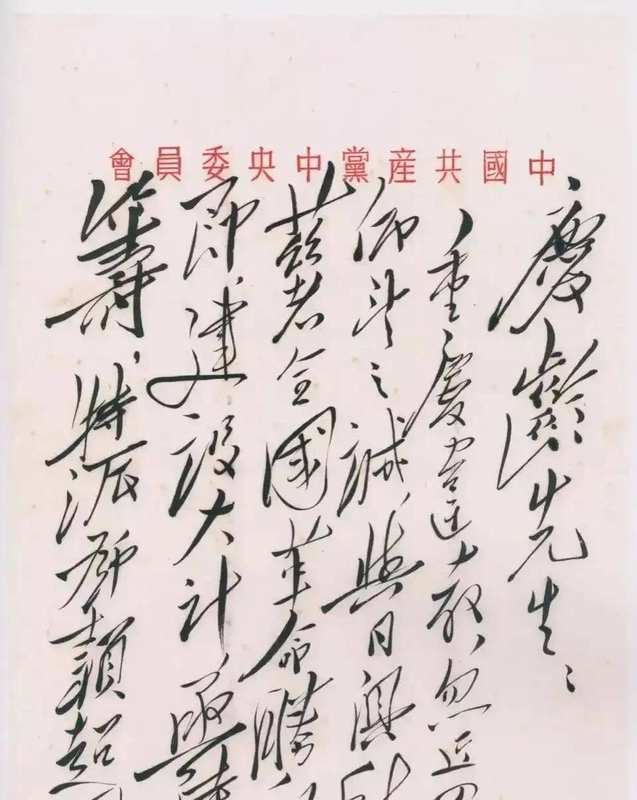 中國共産黨中央委員會
慶齡先生：
重慶違教，忽近
仰望之誠，與日俱
兹者全國革命勝
即，建設大計，亟待
籌，特派鄧穎超